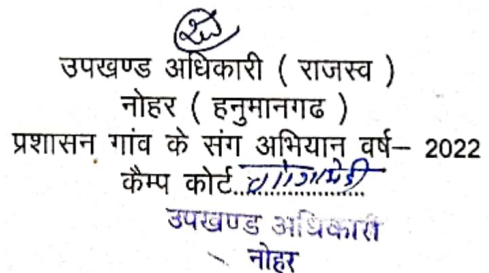 उपखण्ड अधिकारी ( राजस्व )
नोहर ( हनुमानगढ )
प्रशासन गांव के संग अभियान वर्ष– 2022
कैम्प कोर्ट गोगामेडी
उपखण्ड अधिकारी
नोहर